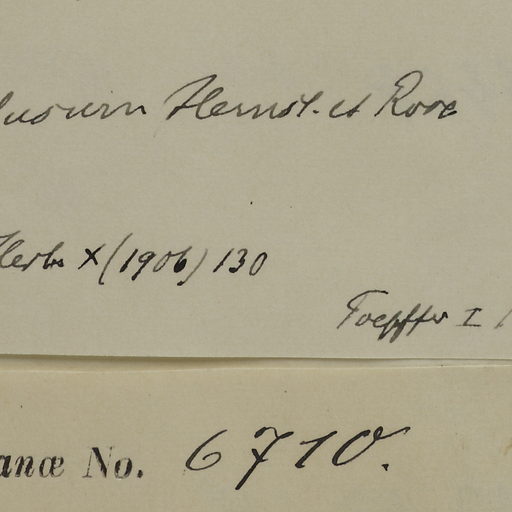 Hemsl. et Rose
Herb. X (1906) 130
Toepffer I
anæ No. 6710.